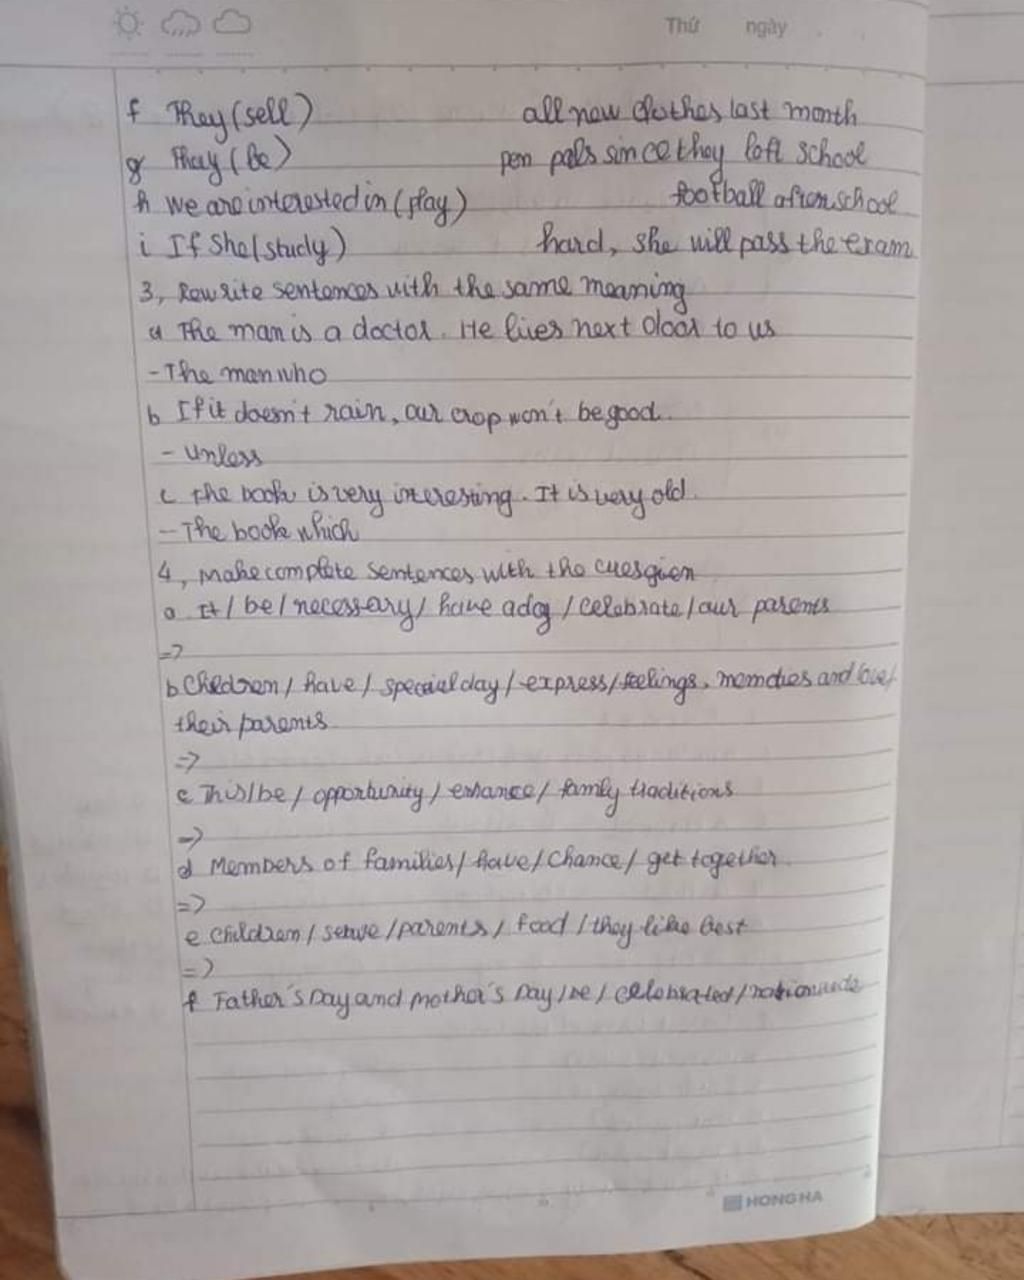 Thứ ngày
f They (sell) all new clothes last month
g They (be) pen pals since they left school
h We are interested in (play) football after school
i If She (study) hard, she will pass the exam
3, Rewrite sentences with the same meaning
a The man is a doctor. He lives next door to us
- The man who
b If it doesn't rain, our crop won't be good.
- Unless
c The book is very interesting. It is very old.
- The book which
4, Make complete sentences with the cues given
a It / be / necessary / have a day / celebrate / our parents
=>
b Children / have / special day / express / feelings, memories and love /
their parents
=>
c This / be / opportunity / enhance / family traditions
=>
d Members of families / have / chance / get together.
=>
e Children / serve / parents / food / they like best
=>
f Father's Day and Mother's Day / be / celebrated / nationwide
HONG HA